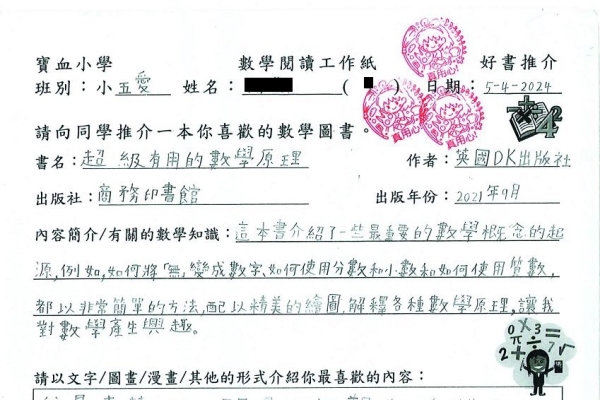 寶血小學 數學閱讀工作紙 好書推介
班別：小五愛 姓名： ( ) 日期：5-4-2024
請向同學推介一本你喜歡的數學圖書。
書名：超級有用的數學原理 作者：英國DK出版社
出版社：商務印書館 出版年份：2021年9月
內容簡介/有關的數學知識：這本書介紹了一些最重要的數學概念的起
源，例如，如何將「無」變成數字、如何使用分數和小數和如何使用質數，
都以非常簡單的方法，配以精美的繪圖，解釋各種數學原理，讓我
對數學產生興趣。
請以文字/圖畫/漫畫/其他的形式介紹你最喜歡的內容：
真用心!
真用心!
真用心!